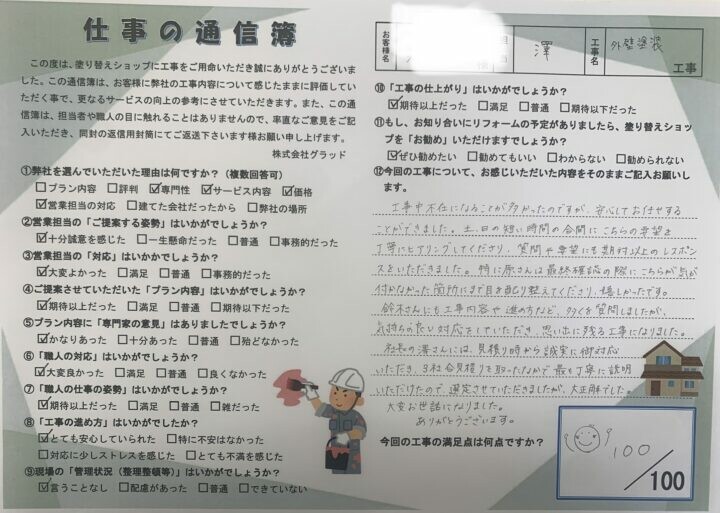 仕事の通信簿
この度は、塗り替えショップに工事をご用命いただき誠にありがとうございま
した。この通信簿は、お客様に弊社の工事内容について感じたままに評価してい
ただく事で、更なるサービスの向上の参考にさせていただきます。また、この通
信簿は、担当者や職人の目に触れることはありませんので、率直なご意見をご記
入いただき、同封の返信用封筒にてご返送下さいます様お願い申し上げます。
株式会社グラッド
①弊社を選んでいただいた理由は何ですか？（複数回答可）
□プラン内容 □評判 ☑専門性 ☑サービス内容 ☑価格
☑営業担当の対応 □建てた会社だったから □弊社の場所
②営業担当の「ご提案する姿勢」はいかがでしょうか？
☑十分誠意を感じた □一生懸命だった □普通 □事務的だった
③営業担当の「対応」はいかがでしょうか？
☑大変よかった □満足 □普通 □事務的だった
④ご提案させていただいた「プラン内容」はいかがでしょうか？
☑期待以上だった □満足 □普通 □期待以下だった
⑤プラン内容に「専門家の意見」はありましたでしょうか？
☑かなりあった □十分あった □普通 □殆どなかった
⑥「職人の対応」はいかがでしょうか？
☑大変良かった □満足 □普通 □良くなかった
⑦「職人の仕事の姿勢」はいかがでしょうか？
☑期待以上だった □満足 □普通 □雑だった
⑧「工事の進め方」はいかがでしたか？
☑とても安心していられた □特に不安はなかった
□対応に少しストレスを感じた □とても不満を感じた
⑨現場の「管理状況（整理整頓等）」はいかがでしょうか？
☑言うことなし □配慮があった □普通 □できていない
お客様名
様
澤
工事名
外壁塗装
工事
⑩「工事の仕上がり」はいかがでしょうか？
☑期待以上だった □満足 □普通 □期待以下だった
⑪もし、お知り合いにリフォームの予定がありましたら、塗り替えショッ
プを「お勧め」いただけますでしょうか？
☑ぜひ勧めたい □勧めてもいい □わからない □勧められない
⑫今回の工事について、お感じいただいた内容をそのままご記入お願いし
ます。
工事中不在になることが多かったのですが、安心してお任せする
ことができました。土、日の短い時間の合間にこちらの希望を
丁寧にヒアリングしてくださり、質問や要望にも期待以上のレスポン
スをいただきました。特に原さんは最終確認の際にこちらが気が
付かなかった箇所にまで目を配り整えてくださり、嬉しかったです。
鈴木さんにも工事内容や進め方など、多くを質問しましたが、
気持ちのよい対応をしていただき、思い出に残る工事になりました。
社長の澤さんには、見積り時から誠実に御対応
いただき、3社合見積りを取ったなかで最も丁寧に説明
いただけたので、選定させていただきましたが、大正解でした。
大変お世話になりました。
ありがとうございます。
今回の工事の満足点は何点ですか？
100
/100